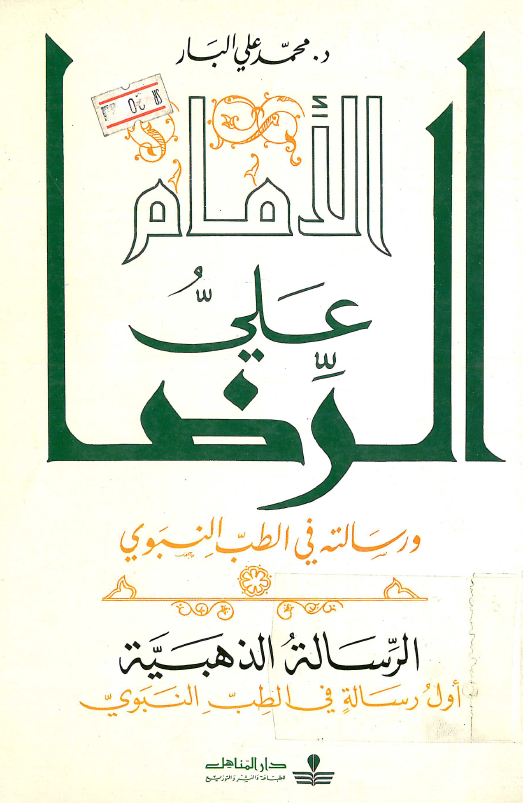 د. محمّد علي البار
الأمام
عَليُّ
الرِّضا
ورسالته في الطبّ النبوي
الرّسَالةُ الذهبَيَّة
أولُ رسَالةٍ في الطِبِّ النَبَويّ
دار المناهل
للطباعة والنشر والتوزيع